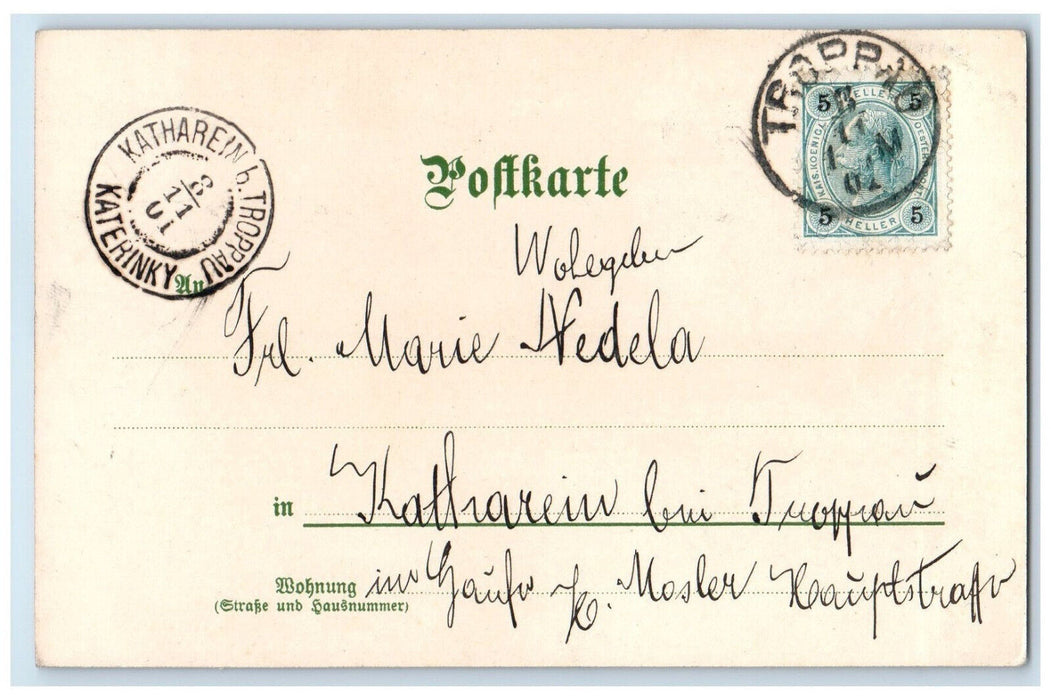 TROPPAU
8 11 01
5 HELLER 5
KAIS. KOENIGL.
5 HELLER 5
KATHAREIN b. TROPPAU
8/11 01
KATERINKY
Postkarte
An
Wohlgeboren
Frl. Marie Nedela
in Katharein bei Troppau
Wohnung im Hause H. Mosler Hauptstrasse
(Straße und Hausnummer)